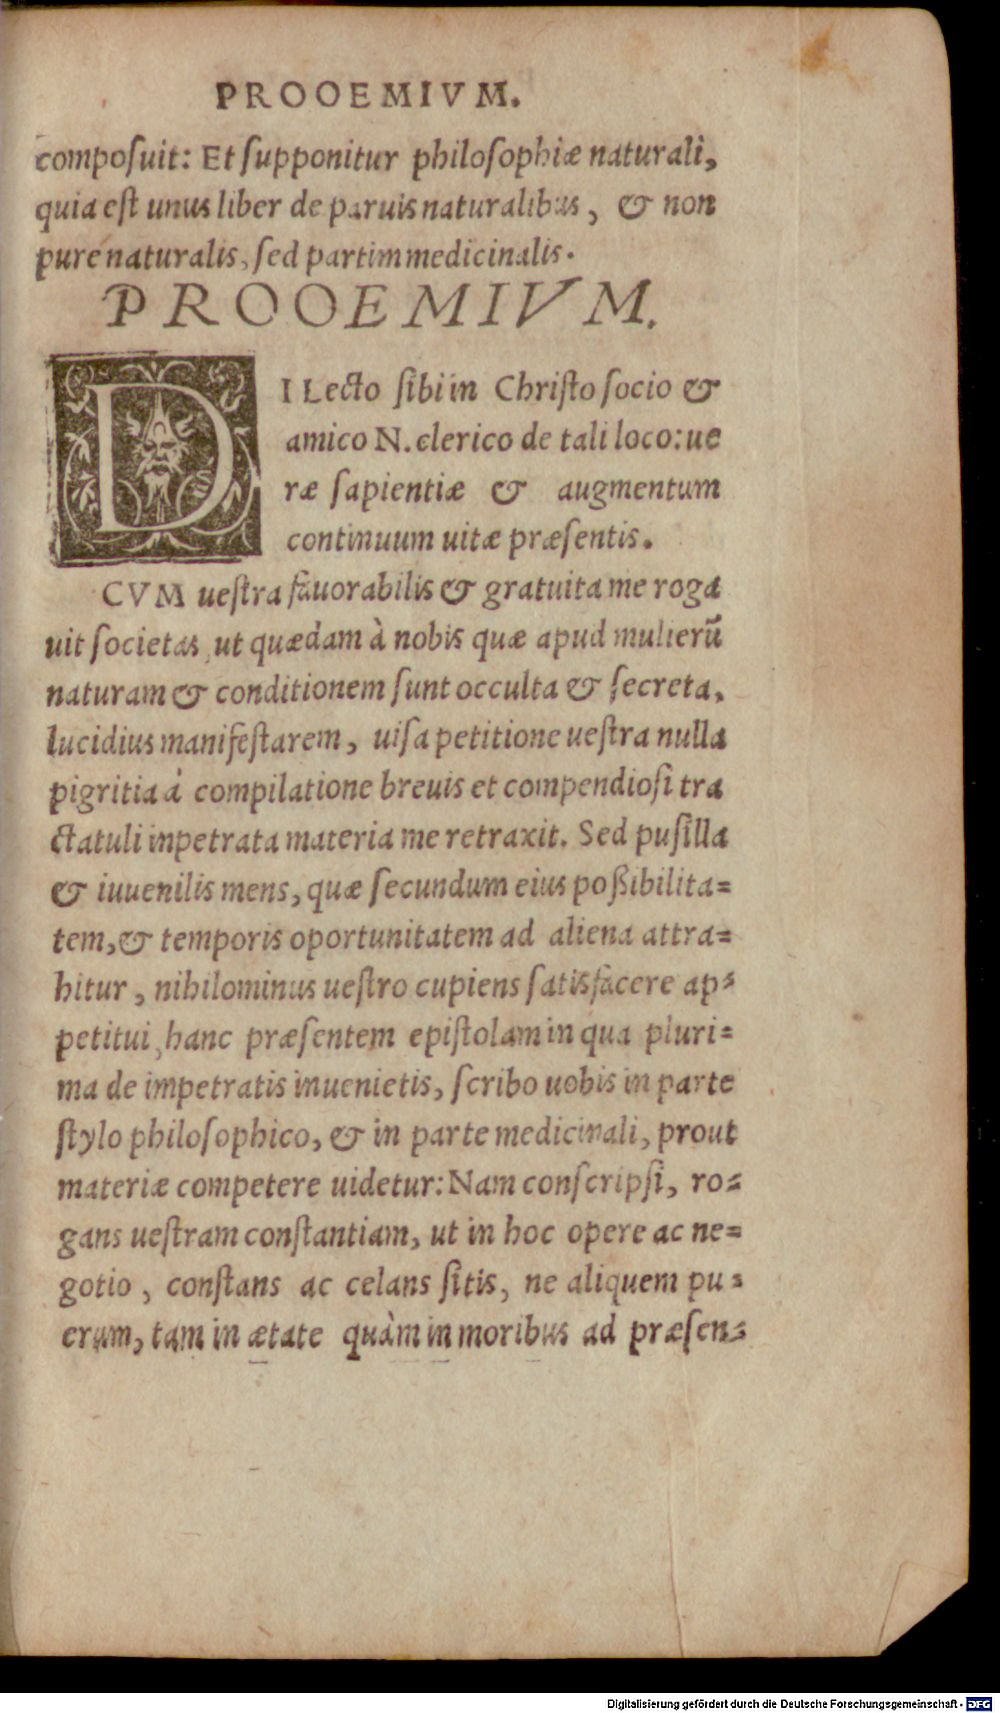 PROOEMIVM.
composuit: Et supponitur philosophiæ naturali,
quia est unus liber de paruis naturalibus, & non
pure naturalis, sed partim medicinalis.
PROOEMIVM.
DI Lecto sibi in Christo socio &
amico N. clerico de tali loco: ue
ræ sapientiæ & augmentum
continuum uitæ præsentis.
CVM uestra fauorabilis & gratuita me roga
uit societas, ut quædam à nobis quæ apud mulierũ
naturam & conditionem sunt occulta & secreta,
lucidius manifestarem, uisa petitione uestra nulla
pigritia à compilatione breuis et compendiosi tra
ctatuli inpetrata materia me retraxit. Sed pusilla
& iuuenilis mens, quæ secundum eius poßibilita=
tem, & temporis oportunitatem ad aliena attra=
hitur, nihilominus uestro cupiens satisfacere ap=
petitui, hanc præsentem epistolam in qua pluri=
ma de impetratis inuenietis, scribo uobis in parte
stylo philosophico, & in parte medicinali, prout
materiæ competere uidetur: Nam conscripsi, ro=
gans uestram constantiam, ut in hoc opere ac ne=
gotio, constans ac celans sitis, ne aliquem pu=
erum, tam in ætate quàm in moribus ad præsen=
Digitalisierung gefördert durch die Deutsche Forschungsgemeinschaft - DFG